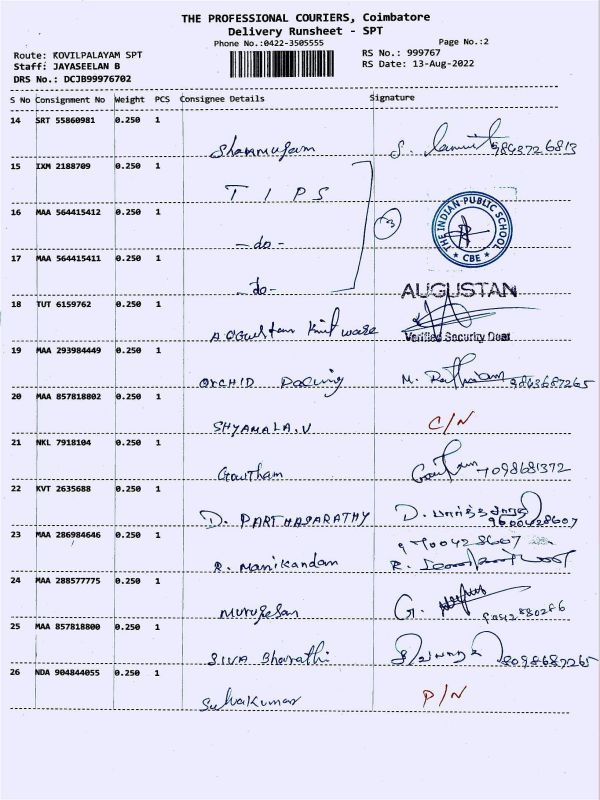 THE PROFESSIONAL COURIERS, Coimbatore
Delivery Runsheet - SPT
Phone No.:0422-3505555
Page No.:2
Route: KOVILPALAYAM SPT
RS No.: 999767
Staff: JAYASEELAN B
RS Date: 13-Aug-2022
DRS No.: DCJB99976702
S No Consignment No Weight PCS Consignee Details Signature
14 SRT 55860981 0.250 1
Shanmugam S. 9843726813
15 IXM 2188709 0.250 1
T I P S
16 MAA 564415412 0.250 1
-do-
3
THE INDIAN PUBLIC SCHOOL
* CBE *
17 MAA 564415411 0.250 1
-do-
AUGUSTAN
18 TUT 6159762 0.250 1
AOGustan Knit ware
Verified Security Dept
19 MAA 293984449 0.250 1
ORCHID Pacing M. Rathinam 9843687265
20 MAA 857818802 0.250 1
SHYAMALA.V C/N
21 NKL 7918104 0.250 1
Gowtham Gowtham 7098681372
22 KVT 2635688 0.250 1
D. PARTHASARATHY D. பார்த்தசாரதி
9600428607
23 MAA 286984646 0.250 1
9700428607
R. Manikandan R.
24 MAA 288577775 0.250 1
Murugesan G. 9042880286
25 MAA 857818800 0.250 1
SIVA Bharathi சிவபாரதி 8098687265
26 NDA 904844055 0.250 1
Selvakumar P/N